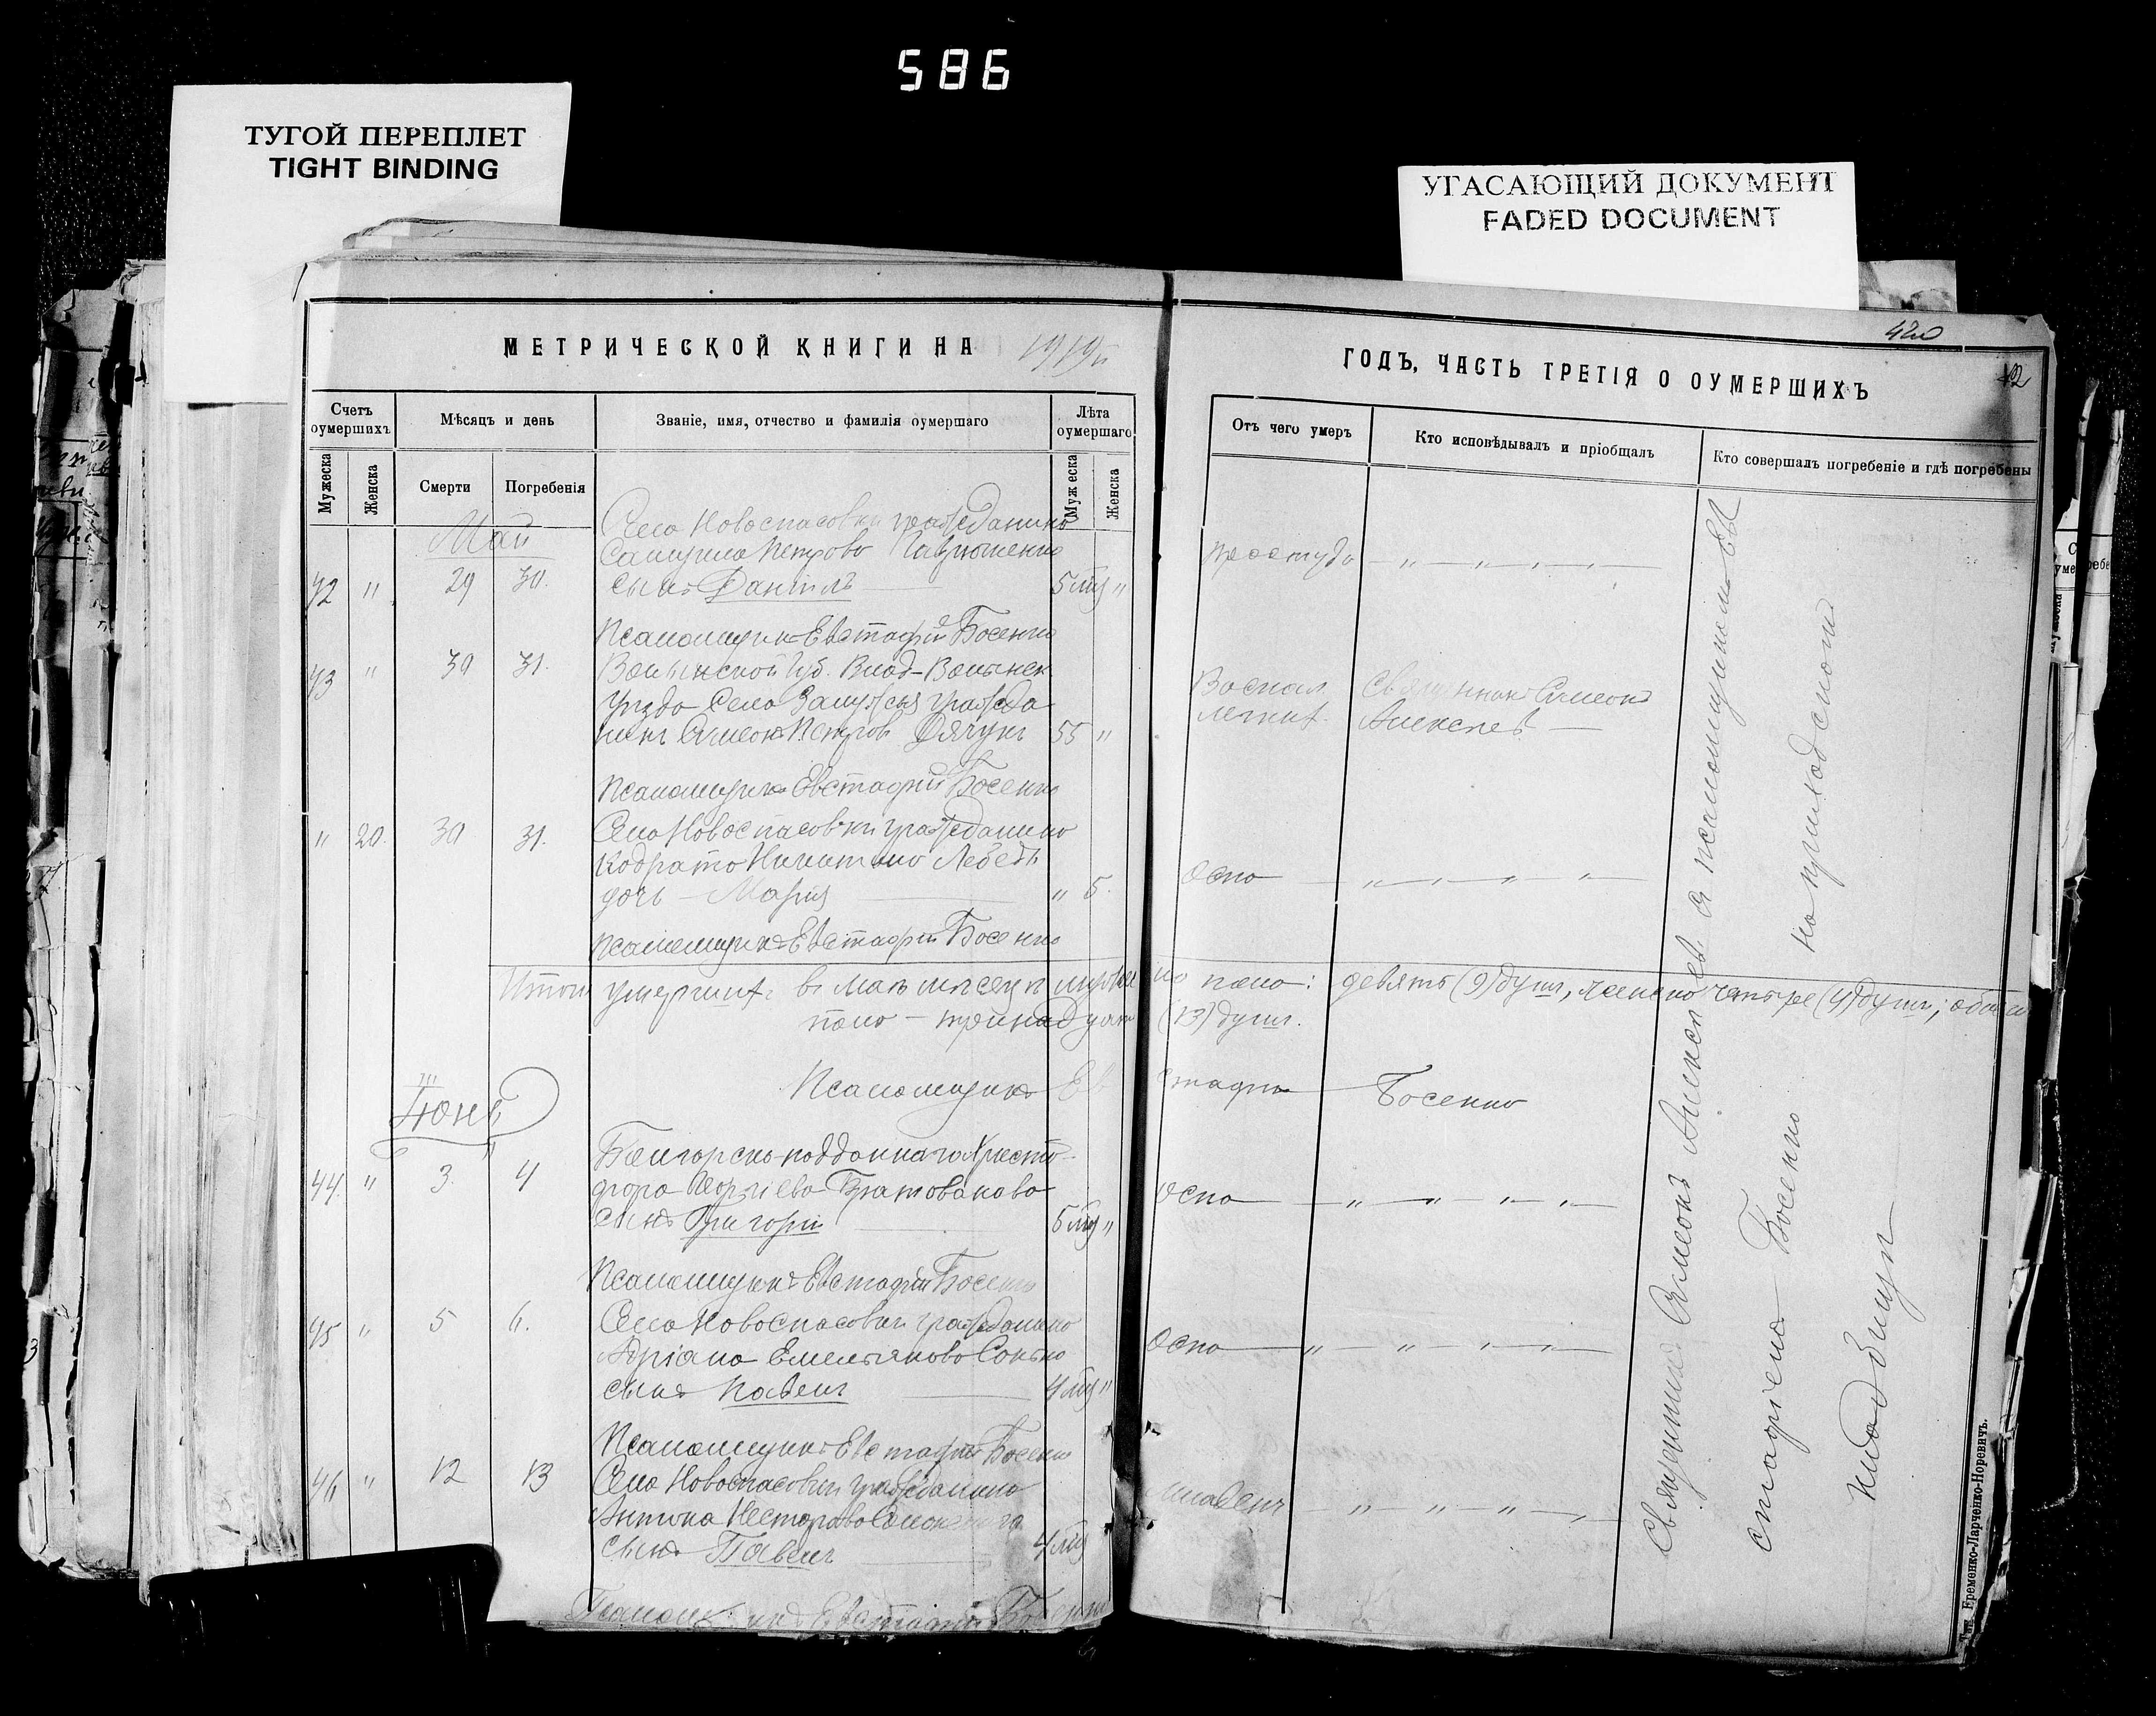 586
ТУГОЙ ПЕРЕПЛЕТ
TIGHT BINDING
УГАСАЮЩИЙ ДОКУМЕНТ
FADED DOCUMENT
420
МЕТРИЧЕСКОЙ КНИГИ НА 1919 г.
ГОДЪ, ЧАСТЬ ТРЕТІЯ О ОУМЕРШИХЪ
42
Счетъ оумершихъ
Мѣсяцъ и день
Званіе, имя, отчество и фамилія оумершаго
Лѣта оумершаго
Мужеска
Женска
Смерти
Погребенія
Мужеска
Женска
Отъ чего умеръ
Кто исповѣдывалъ и пріобщалъ
Кто совершалъ погребеніе и гдѣ погребены
Май
Села Новоспасовки гражданина
Петрова
42 " 29 30. сынъ Даніилъ 5 мц "
простуда
Псаломщикъ Евстафій Босенко
43 " 30 31. Волынской губ. Влад-Волынск
уѣзда села гражда
нинъ Симеонъ Петровъ Дячукъ 55 "
Воспал. легких.
Священникъ Симеонъ
Алексѣев
Псаломщикъ Евстафій Босенко
" 20. 30 31. Села Новоспасовки гражданина
Кодрата Никитина Лебедь
дочь - Марія " 5.
оспа
Псаломщикъ Евстафій Босенко
Итого умершихъ въ маѣ мѣсяцѣ мужескаго пола: девять (9) душъ, женскаго четыре (4) душъ; обоего
пола - тринадцать (13) душъ.
Псаломщикъ Евстафій Босенко
Іюнь
44. " 3. 4 Болгарско-подданнаго Христо-
фора Георгіева Братованова
сынъ Григорій 5 мц "
оспа
Псаломщикъ Евстафій Босенко
45 " 5 6. Села Новоспасовки гражданина
Адріана Емельянова Сонько
сынъ Павелъ 4 мц "
Оспа
Псаломщикъ Евстафій Босенко
46 " 12 13 Села Новоспасовки гражданина
Антона Нестерова
сынъ Павелъ 4 мц
Псаломщикъ Евстафій Босенко
Священникъ Симеонъ Алексѣевъ и псаломщикомъ Ев
стафіемъ Босенко на приходскомъ
кладбищѣ
Тип. Еременко-Ларченко-Норевичъ.